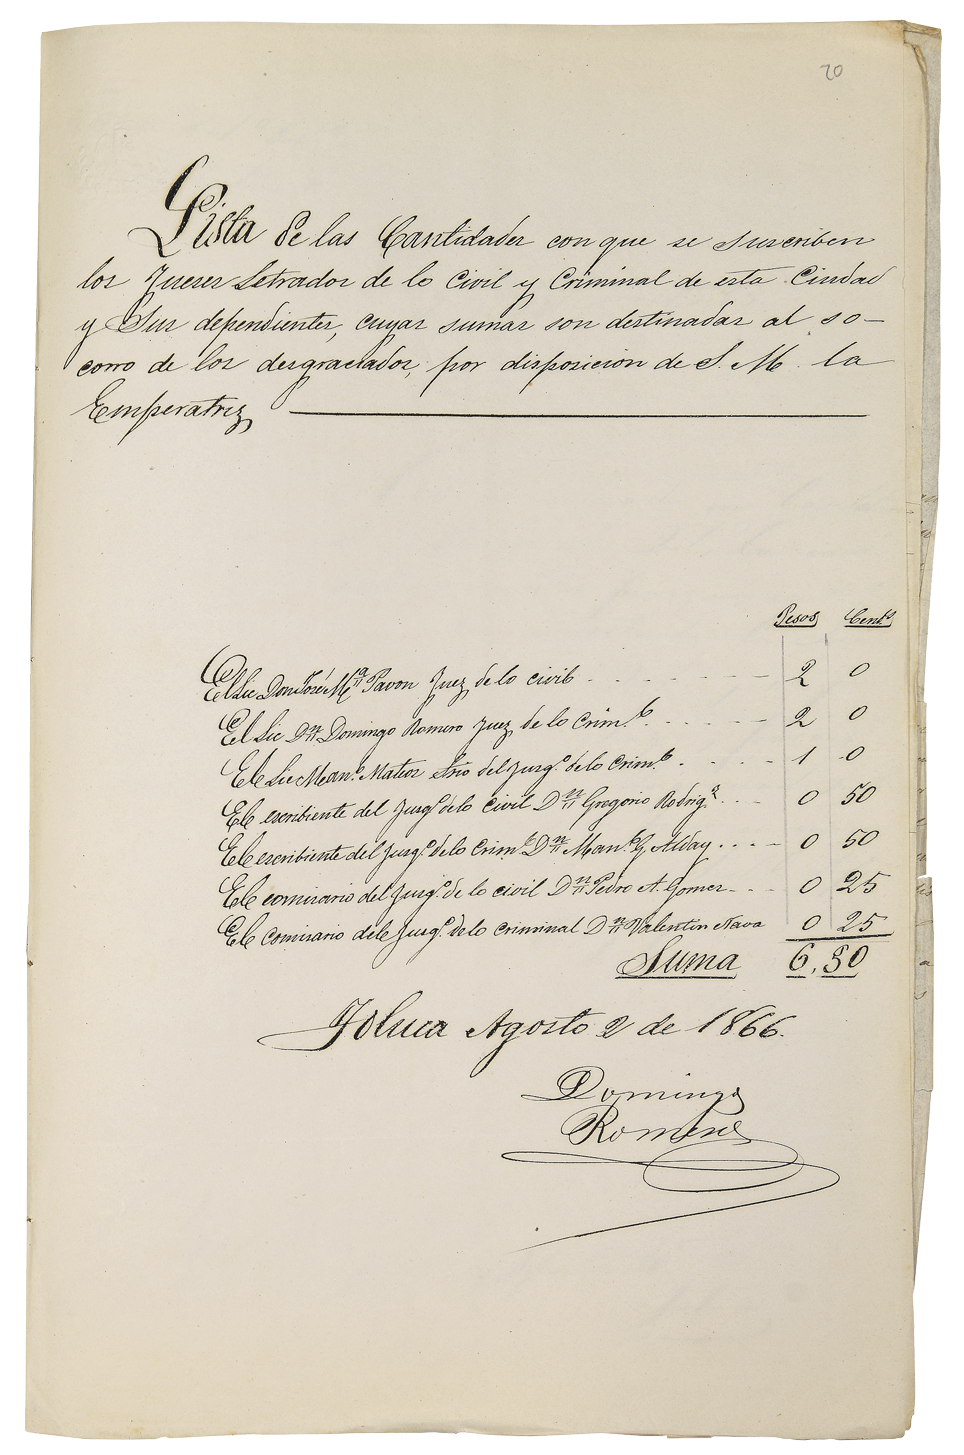 20
Lista de las Cantidades con que se suscriben
los Jueses Letrados de lo Civil y Criminal de esta Ciudad
y sus dependientes, cuyas sumas son destinadas al so-
corro de los desgraciados, por disposicion de S. M. la
Emperatriz
Pesos Cents
El Lic Don José Ma Pavon Juez de lo civil 2 0
El Lic Dn Domingo Romero Juez de lo Criml 2 0
El Lic Manl Mateos Srio del Juzgo de lo Criml 1 0
El escribiente del Juzgo de lo civil Dn Gregorio Rodrigz 0 50
El escribiente del Juzgo de lo Criml Dn Manl G. Alday 0 50
El comisario del Juzgo de lo civil Dn Pedro A. Gomes 0 25
El comisario del Juzgo de lo criminal Dn Valentin Nava 0 25
Suma 6, 50
Toluca Agosto 2 de 1866.
Domingo
Romero